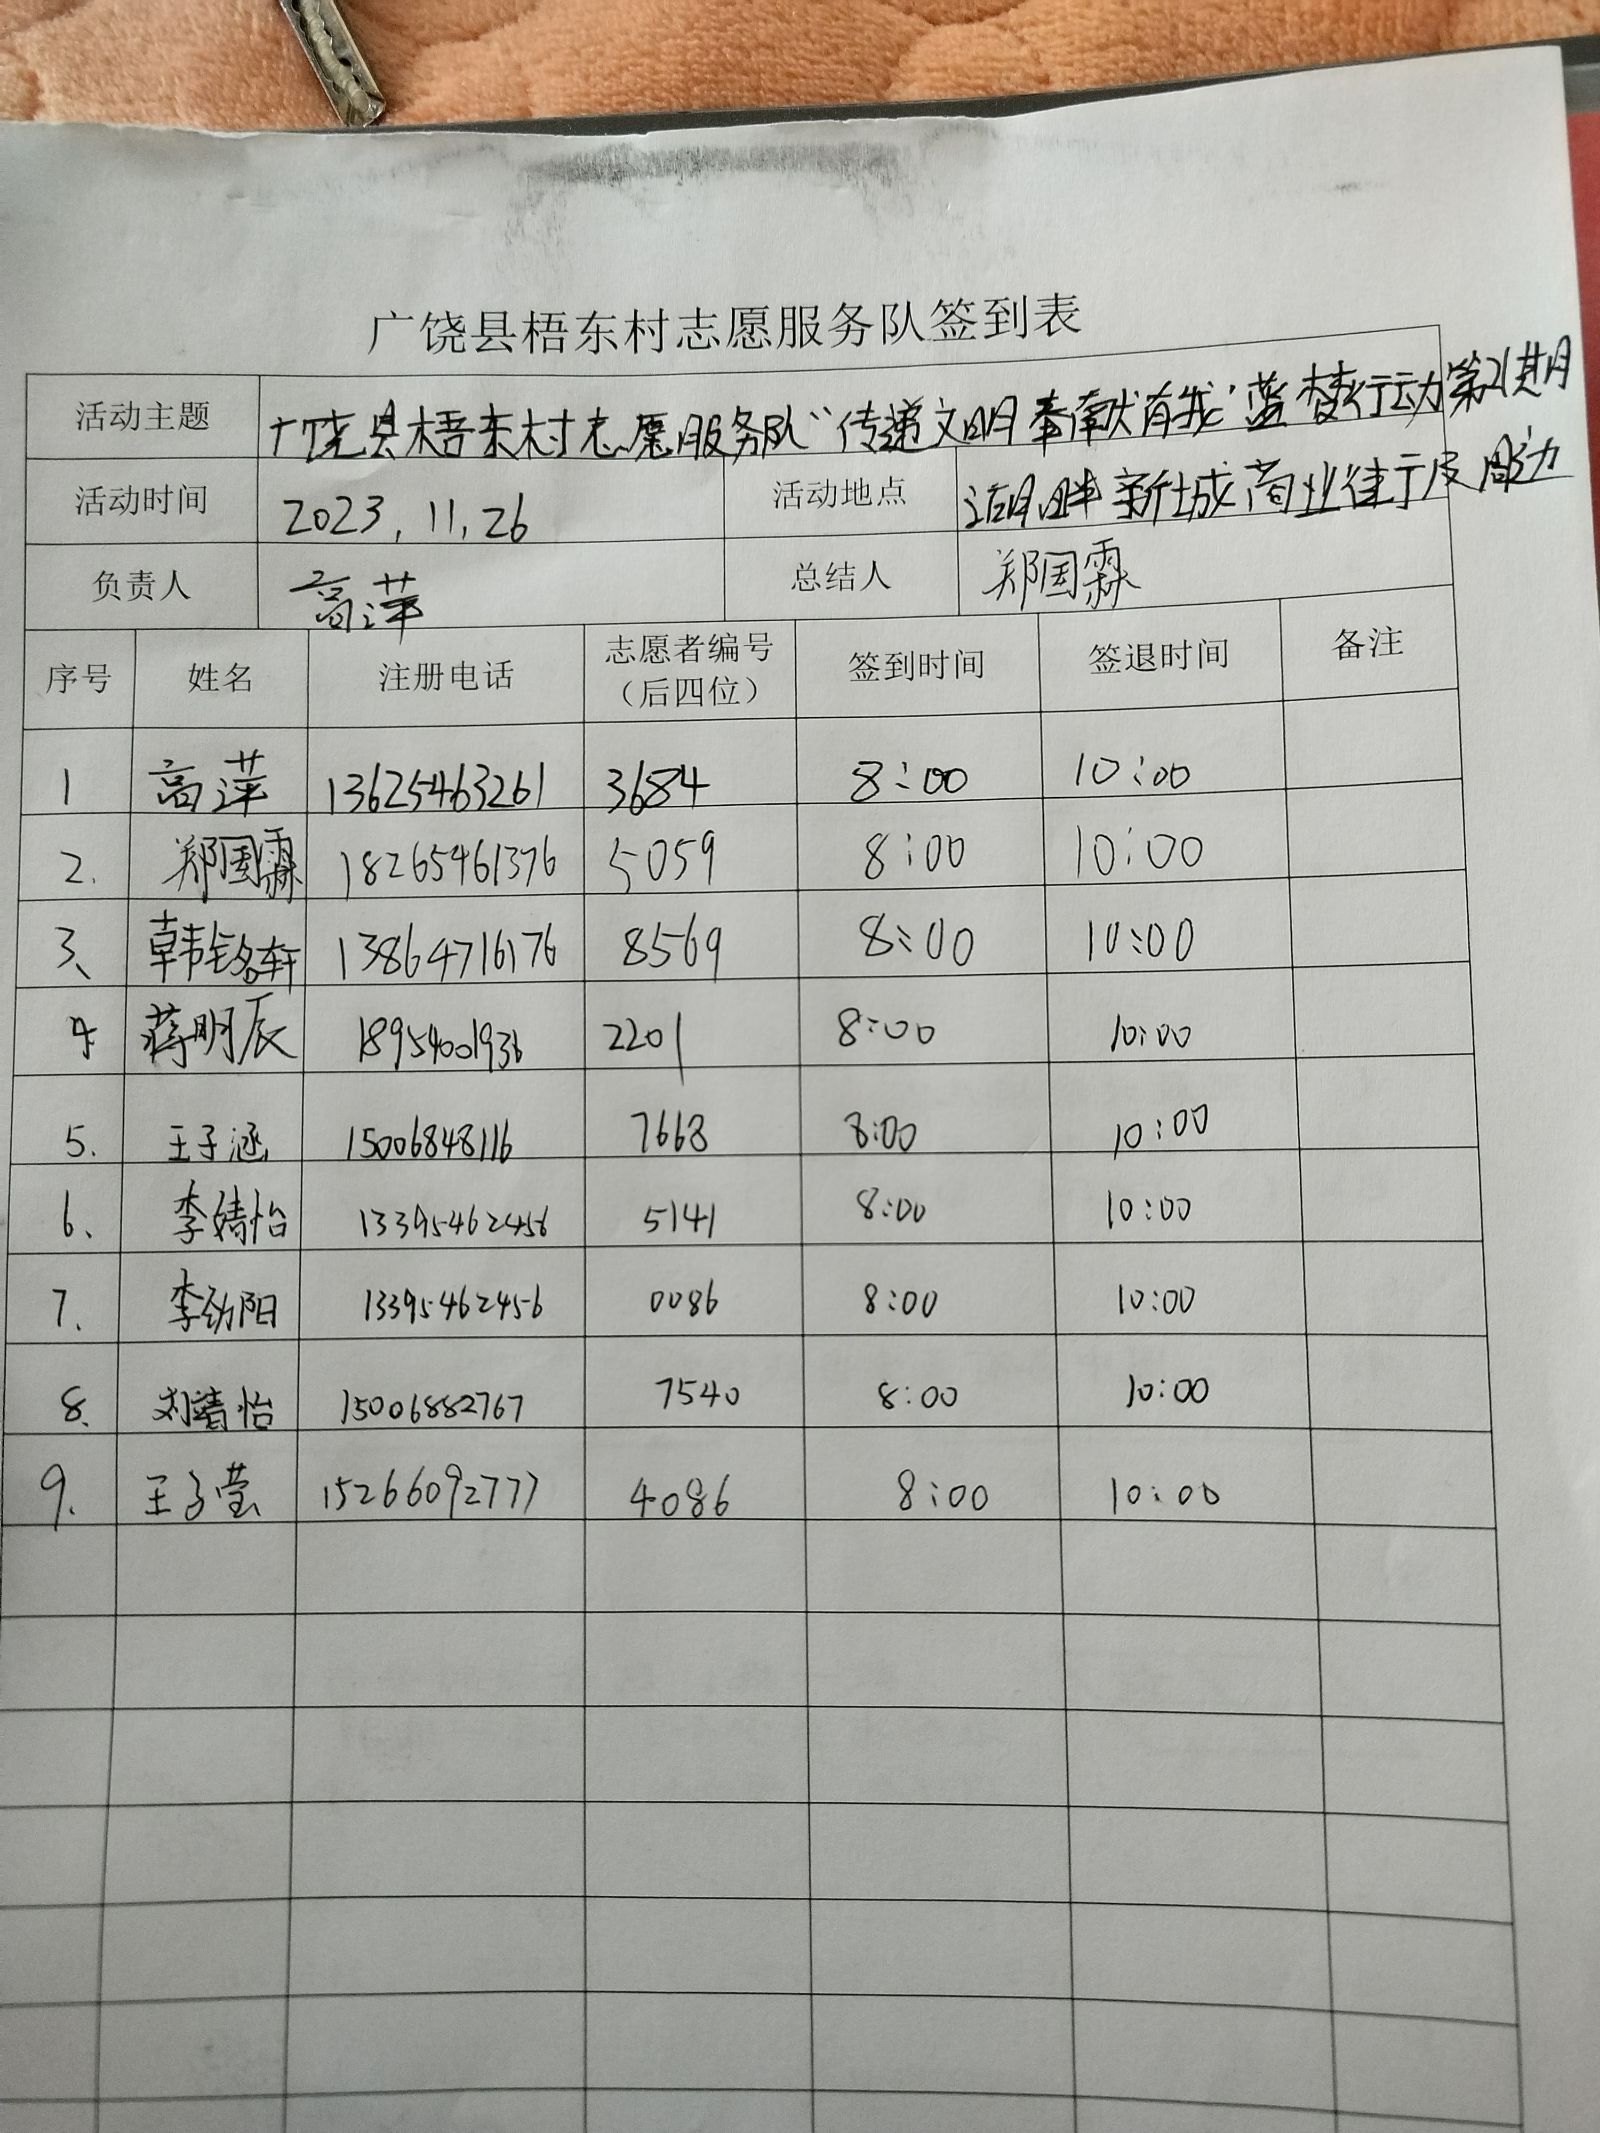 广饶县梧东村志愿服务队签到表
活动主题 广饶县梧东村志愿服务队“传递文明奉献有我”蓝梦行动第21期
活动时间 2023.11.26 活动地点 湖畔新城商业街于皮周边
负责人 高萍 总结人 郑国霖
序号 姓名 注册电话 志愿者编号（后四位） 签到时间 签退时间 备注
1 高萍 13625463261 3684 8:00 10:00
2. 郑国霖 18265461376 5059 8:00 10:00
3、 韩铭轩 13864716176 8569 8:00 10:00
4 蒋明辰 18954001936 2201 8:00 10:00
5. 王子涵 15006848116 7668 8:00 10:00
6、 李婧怡 13395462456 5141 8:00 10:00
7、 李劲阳 13395462456 0086 8:00 10:00
8、 刘靖怡 15006882767 7540 8:00 10:00
9. 王子莹 15266092777 4086 8:00 10:00